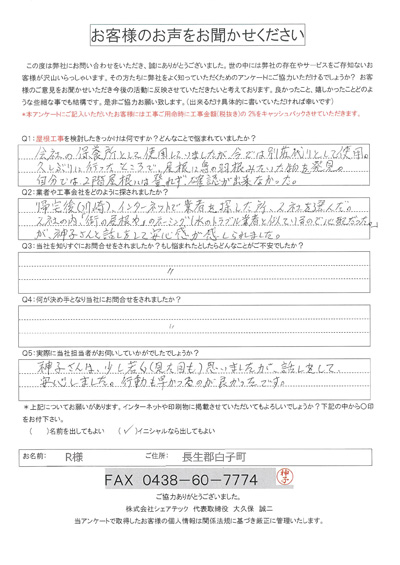 お客様のお声をお聞かせください
この度は弊社にお問い合わせをいただき、誠にありがとうございました。世の中には弊社の存在やサービスをご存知ないお
客様が沢山いらっしゃいます。その方たちに弊社をよく知っていただくためのアンケートにご協力いただけるでしょうか？ お客
様のご意見をお聞かせいただき今後の活動に反映させていただきたいと考えております。良かったこと、嬉しかったことどのよ
うな些細な事でも結構です。是非ご協力お願い致します。（出来るだけ具体的に書いていただければ幸いです）
*本アンケートにご記入いただいたお客様には工事ご用命時に工事金額(税抜き)の2%をキャッシュバックさせていただきます。
Q1:屋根工事を検討したきっかけは何ですか？どんなことで悩まれていましたか？
会社の保養所として使用していましたが、今では別荘代りとして使用。
久しぶりに行ったところで、屋根に鳥の羽根みたいな物を発見。
自分では2階屋根には登れず確認が出来なかった。
Q2:業者や工事会社をどのように探されましたか？
帰宅後(川崎)、インターネットで業者を探した所、2社を選んだ。
2社の内「街の屋根や」のネーミングが水のトラブル業者と似ているので心配だった。
が、神子さんと話しをして安心感が感じられました。
Q3:当社を知りすぐにお問合せをされましたか？もし悩まれたとしたらどんなことがご不安でしたか？
〃
Q4:何が決め手となり当社にお問合せをされましたか？
〃
Q5:実際に当社担当者がお伺いしていかがでしたでしょうか？
神子さんは、少し若く(見た目も)思いましたが、話しをして、
安心しました。行動も早かったのが良かったです。
＊上記についてお願いがあります。インターネットや印刷物に掲載させていただいてもよろしいでしょうか？下記の中から〇印
をお付下さい。
(　)名前を出してもよい　(✓)イニシャルなら出してもよい
お名前:　R様　ご住所:　長生郡白子町
FAX 0438-60-7774 神子
ご協力ありがとうございました。
株式会社シェアテック 代表取締役 大久保 誠二
当アンケートで取得したお客様の個人情報は関係法規に基づき厳正に管理いたします。